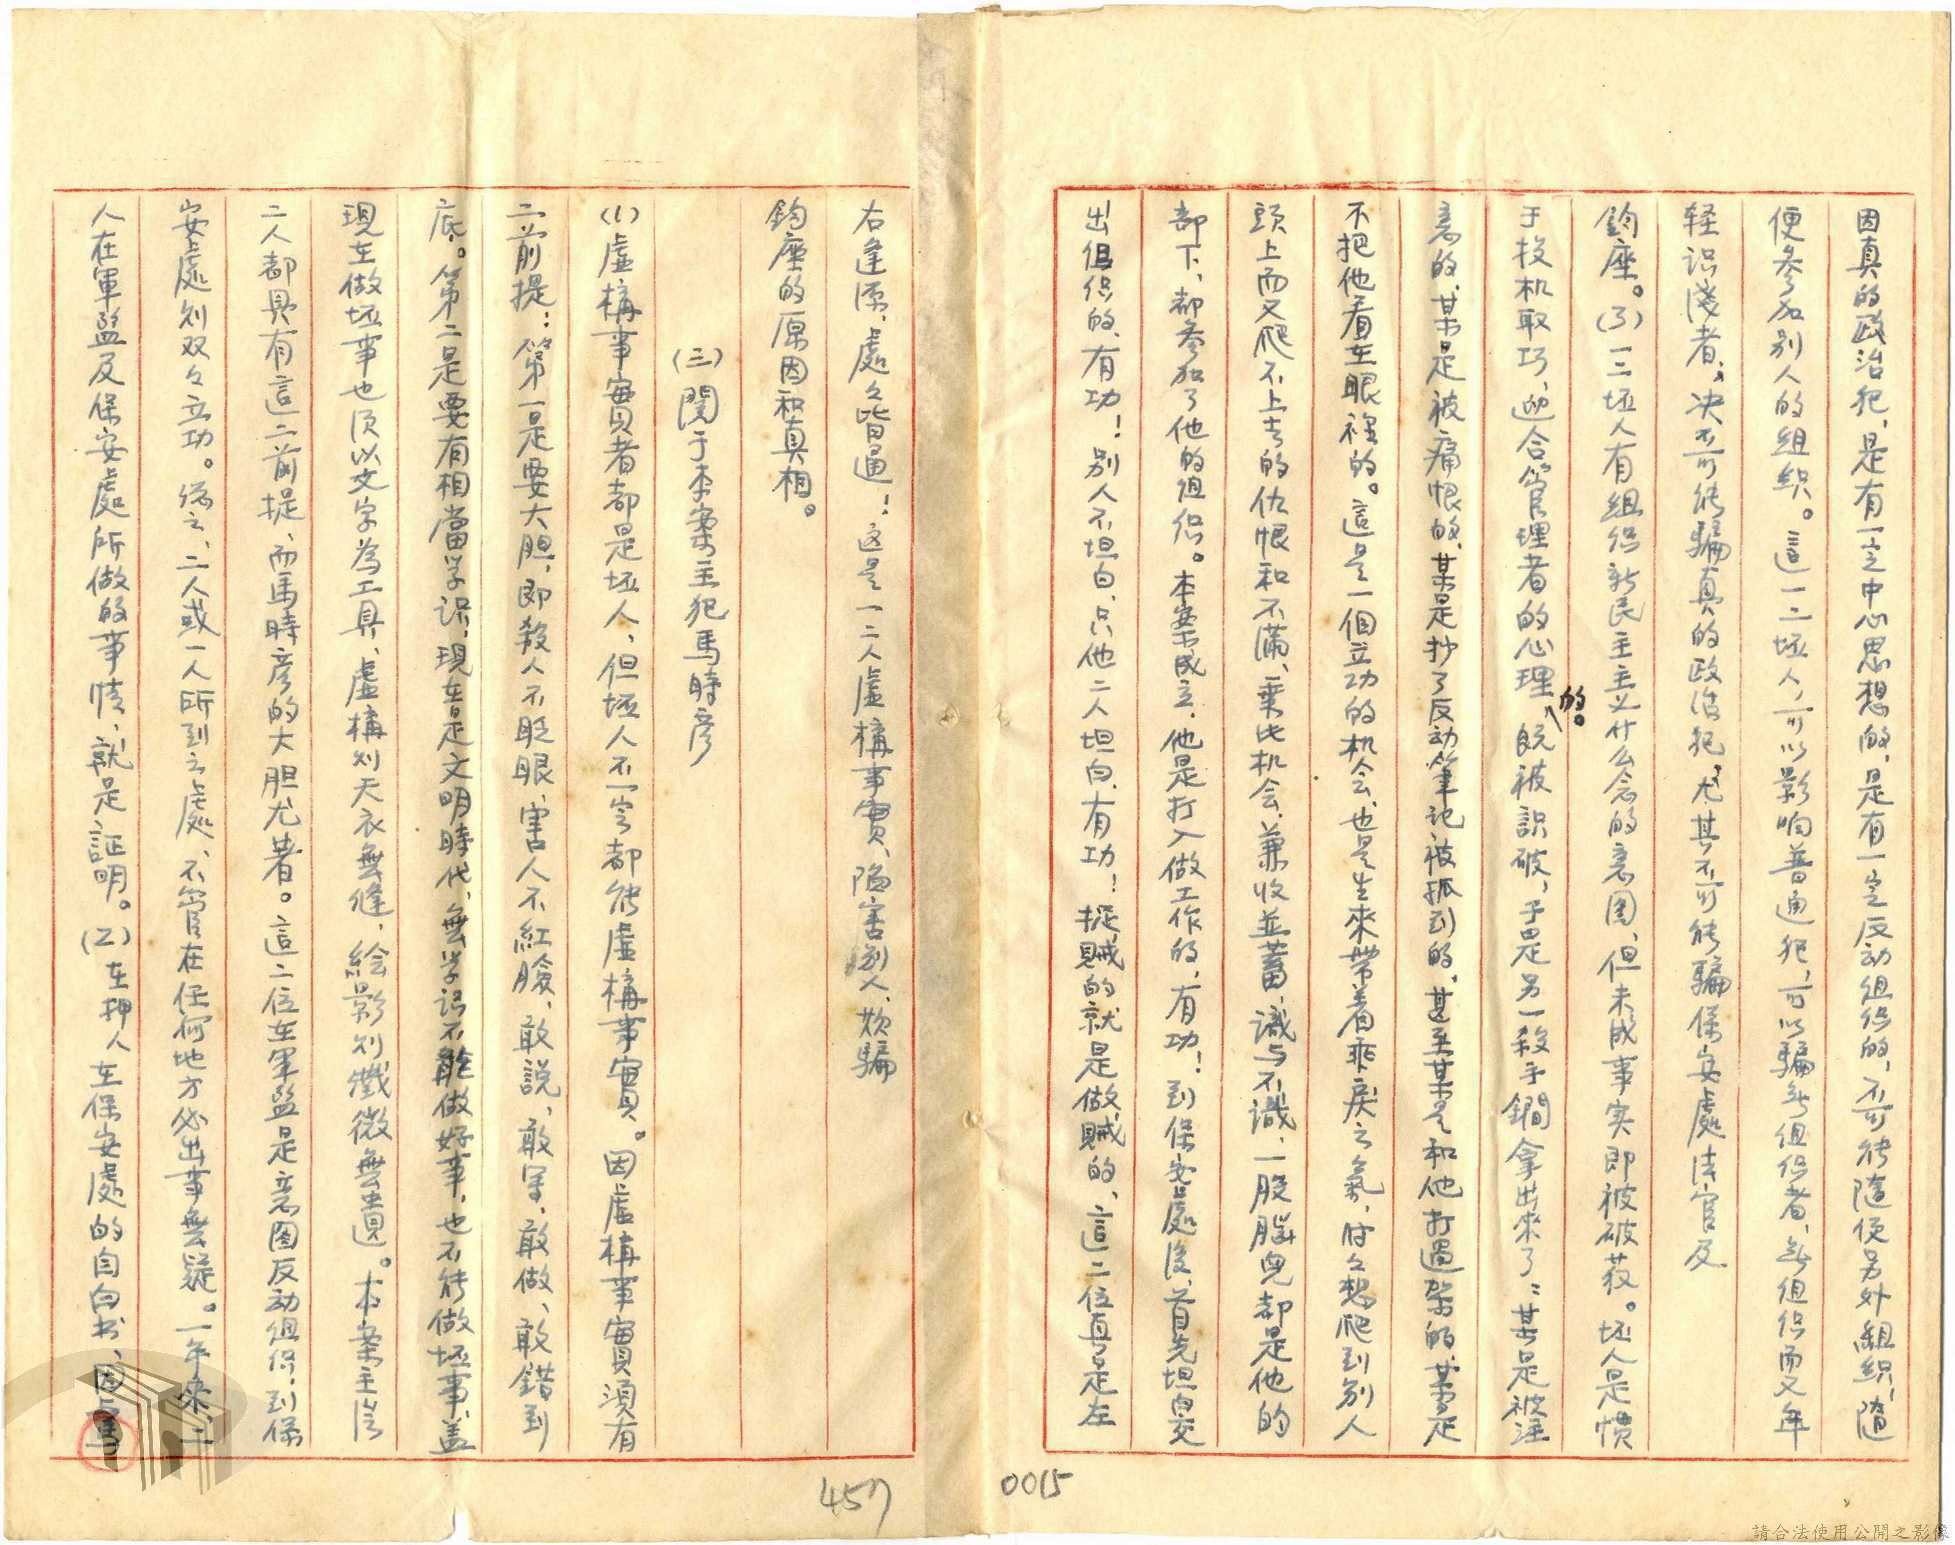 因真的政治犯，是有一定中心思想的，是有一定反动组织的，不可能隨便另外組織，隨
便参加別人的組织。這一二坯人，可以影响普通犯，可以騙無组织者，無组织而又年
轻识淺者，决不可能騙真的政治犯，尤其不可能騙保安處法官及
鈞座。(3)一二坯人有組织新民主主义什么会的意图，但未成事实即被破获。坯人是慣
于投机取巧，迎合管理者的心理的。既被識破，于是另一殺手鐧拿出來了：某是被注
意的，某是被痛恨的，某是抄了反动筆记被抓到的，甚至某是和他打過架的，某是
不把他看在眼裡的。這是一個立功的机会，也是生來帶着乖戾之氣，时々想爬到别人
頭上而又爬不上去的仇恨和不滿，乘此机会，兼收並蓄，識与不識，一股腦兒都是他的
部下，都参加了他的组织。本案成立，他是打入做工作的，有功！到保安處後，首先坦白交
出组织的，有功！别人不坦白，只他二人坦白，有功！捉贼的就是做贼的，這二位真是左
右逢源，處々皆通！这是一二人虛構事實，陷害别人，欺騙
鈞座的原因和真相。
(三)関于本案主犯馬時彦
(1)虛構事實者都是坯人，但坯人不一定都能虛構事實。因虛構事實須有
二前提：第一是要大胆，即殺人不眨眼，害人不紅臉，敢説，敢害，敢做，敢錯到
底。第二是要有相當学识，現在是文明時代，無学识不能做好事，也不能做坯事，盖
現在做坯事也须以文字為工具，虛構到天衣無縫，绘影到纖微無遺。本案主嵏
二人都具有這二前提，而馬時彦的大胆尤著。這二位在軍監是意图反动组织，到保
安處到双々立功。總之，二人或一人所到之處，不管在任何地方必出事無疑。一年來，二
人在軍監及保安處所做的事情，就是証明。(2)在押人在保安處的自白书，因馬
457
0015
請合法使用公開之影像